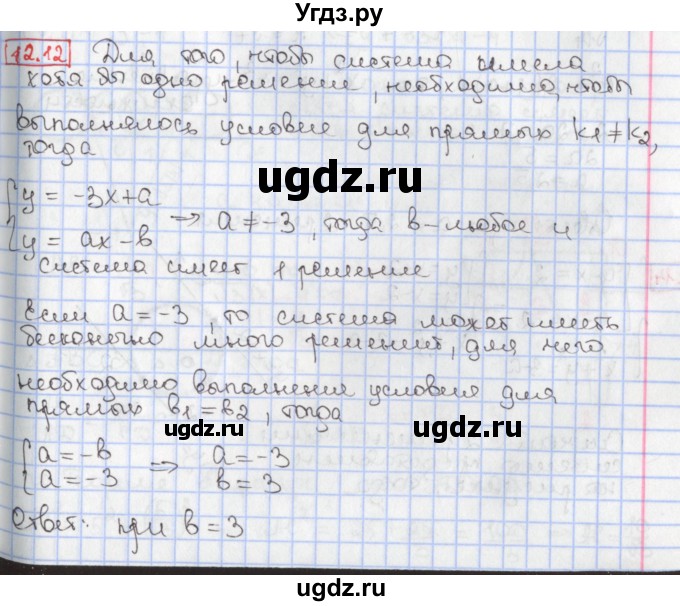 Угдз.ру
12.12 Для того, чтобы система имела
хотя бы одно решение, необходимо, чтобы
выполнялось условие для прямых k1 ≠ k2,
тогда
ugdz.ru
{ y = -3x+a
⇒ a ≠ -3, тогда b - любое и
{ y = ax - b
система имеет 1 решение
ugdz.ru
Если a = -3, то система может иметь
бесконечно много решений, для чего
необходимо выполнение условия для
прямых b1 = b2, тогда
ugdz.ru
{ a = -b ⇒ a = -3
{ a = -3 b = 3
Ответ: при b = 3
ugdz.ru
ugdz.ru